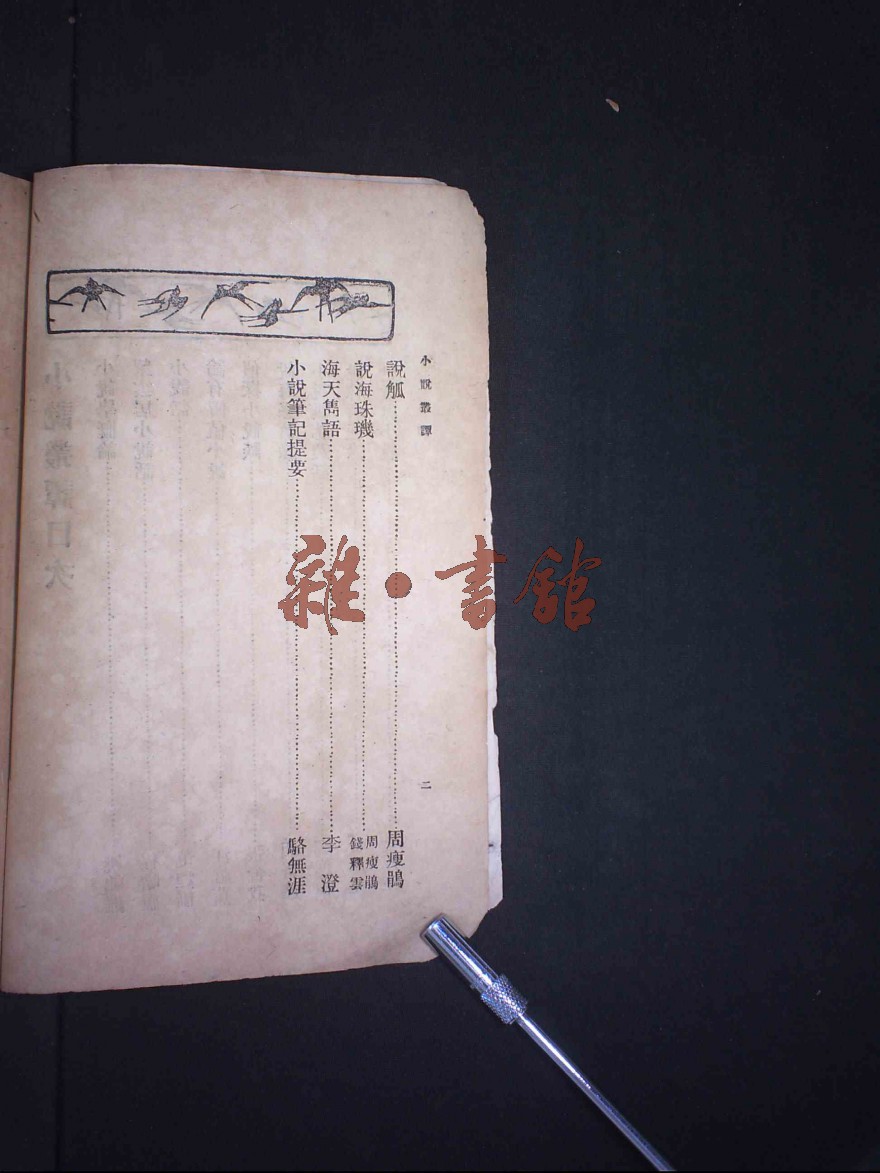 小說叢譚
二
說觚……周瘦鵑
說海珠璣……周瘦鵑 錢釋雲
海天雋語……李澄
小說筆記提要……駱無涯
雜·書館
小說叢譚目次